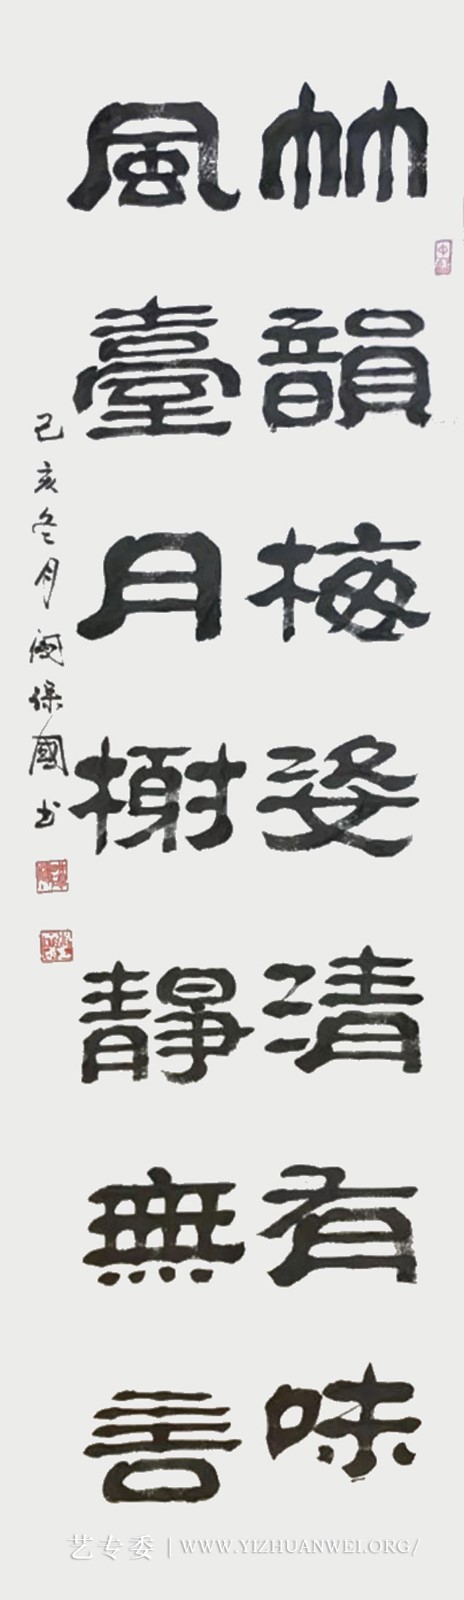 竹韻梅姿清有味
風臺月榭靜無言
己亥冬月閔保國书
艺专委 | WWW.YIZHUANWEI.ORG/